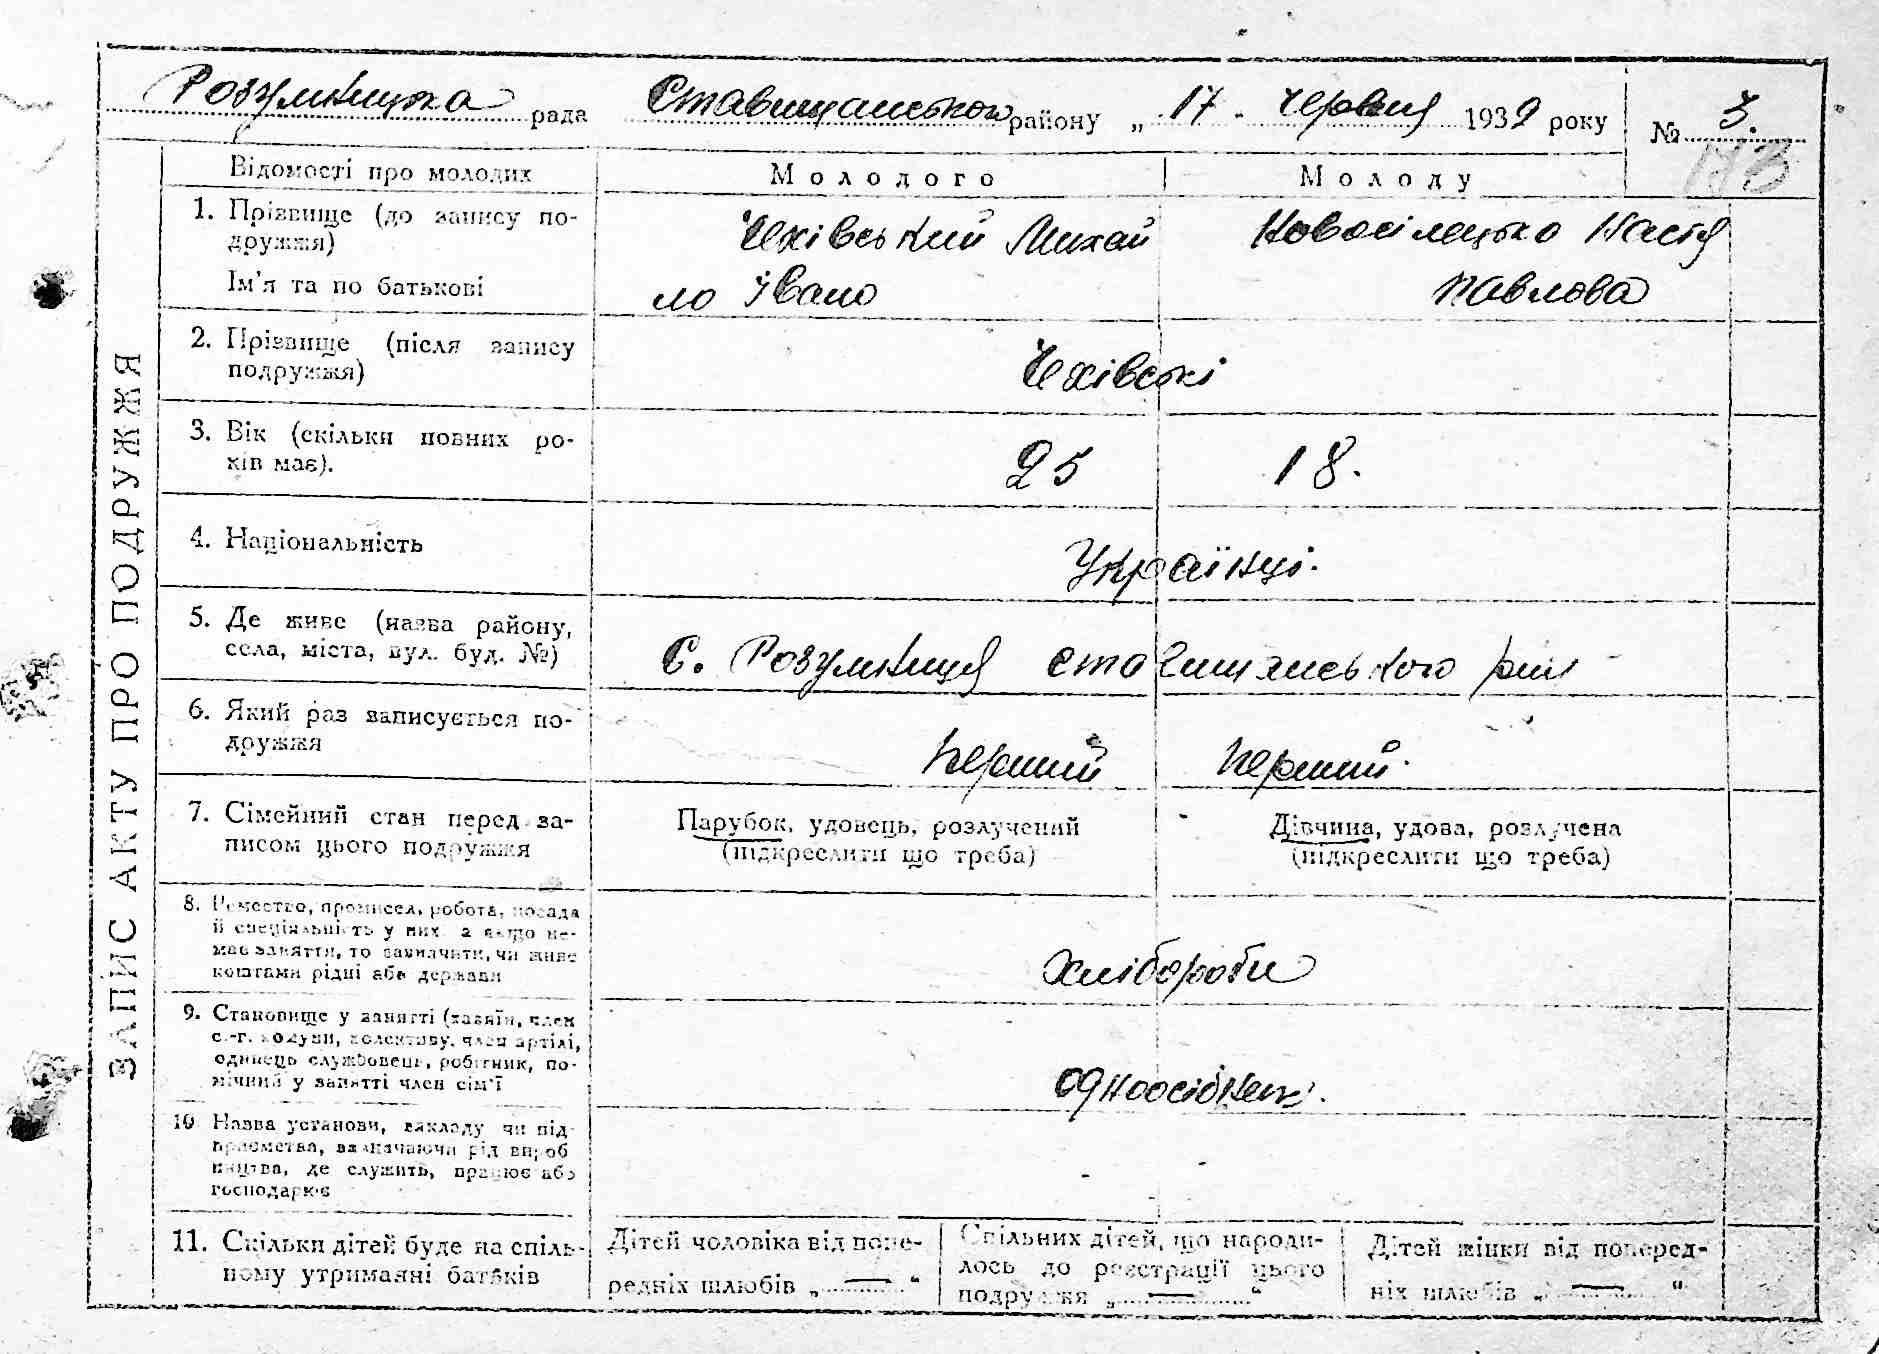 Розумницька рада Ставищанського району „ 17 - червня 1932 року № 3.
113
ЗАПИС АКТУ ПРО ПОДРУЖЖЯ
Відомості про молодих
Молодого
Молоду
1. Прізвище (до запису по-
дружжя)
Ім'я та по батькові
Чехівський Михай
ло Івано
Новосілецько Настя
Павлова
2. Прізвище (після запису
подружжя)
Чехівські
3. Вік (скільки повних ро-
ків має).
25
18.
4. Національність
Українці.
5. Де живе (назва району,
села, міста, вул. буд. №)
С. Розумниця Ставищанського
6. Який раз записується по-
дружжя
перший
перший.
7. Сімейний стан перед за-
писом цього подружжя
Парубок, удовець, розлучений
(підкреслити що треба)
Дівчина, удова, розлучена
(підкреслити що треба)
8. Ремество, промисел, робота, посада
й спеціяльність у них а якщо не-
має заняття, то зазначити, чи живе
коштами рідні або держави
Хлібороби
9. Становище у занятті (хазяїн, член
с.-г. комуни, колективу, член артілі,
одинець службовець, робітник, по-
мічний у занятті член сім'ї
Одноосібнеки.
10 Назва установи, закладу чи під-
приємства, зазначаючи рід вироб
ництва, де служить, працює або
господарює
-
-
11. Скільки дітей буде на спіль-
ному утриманні батьків
Дітей чоловіка від попе-
редніх шлюбів „ — “
Спільних дітей, що народи-
лось до реєстрації цього
подружжя „ — “
Дітей жінки від поперед-
ніх шлюбів „ — “